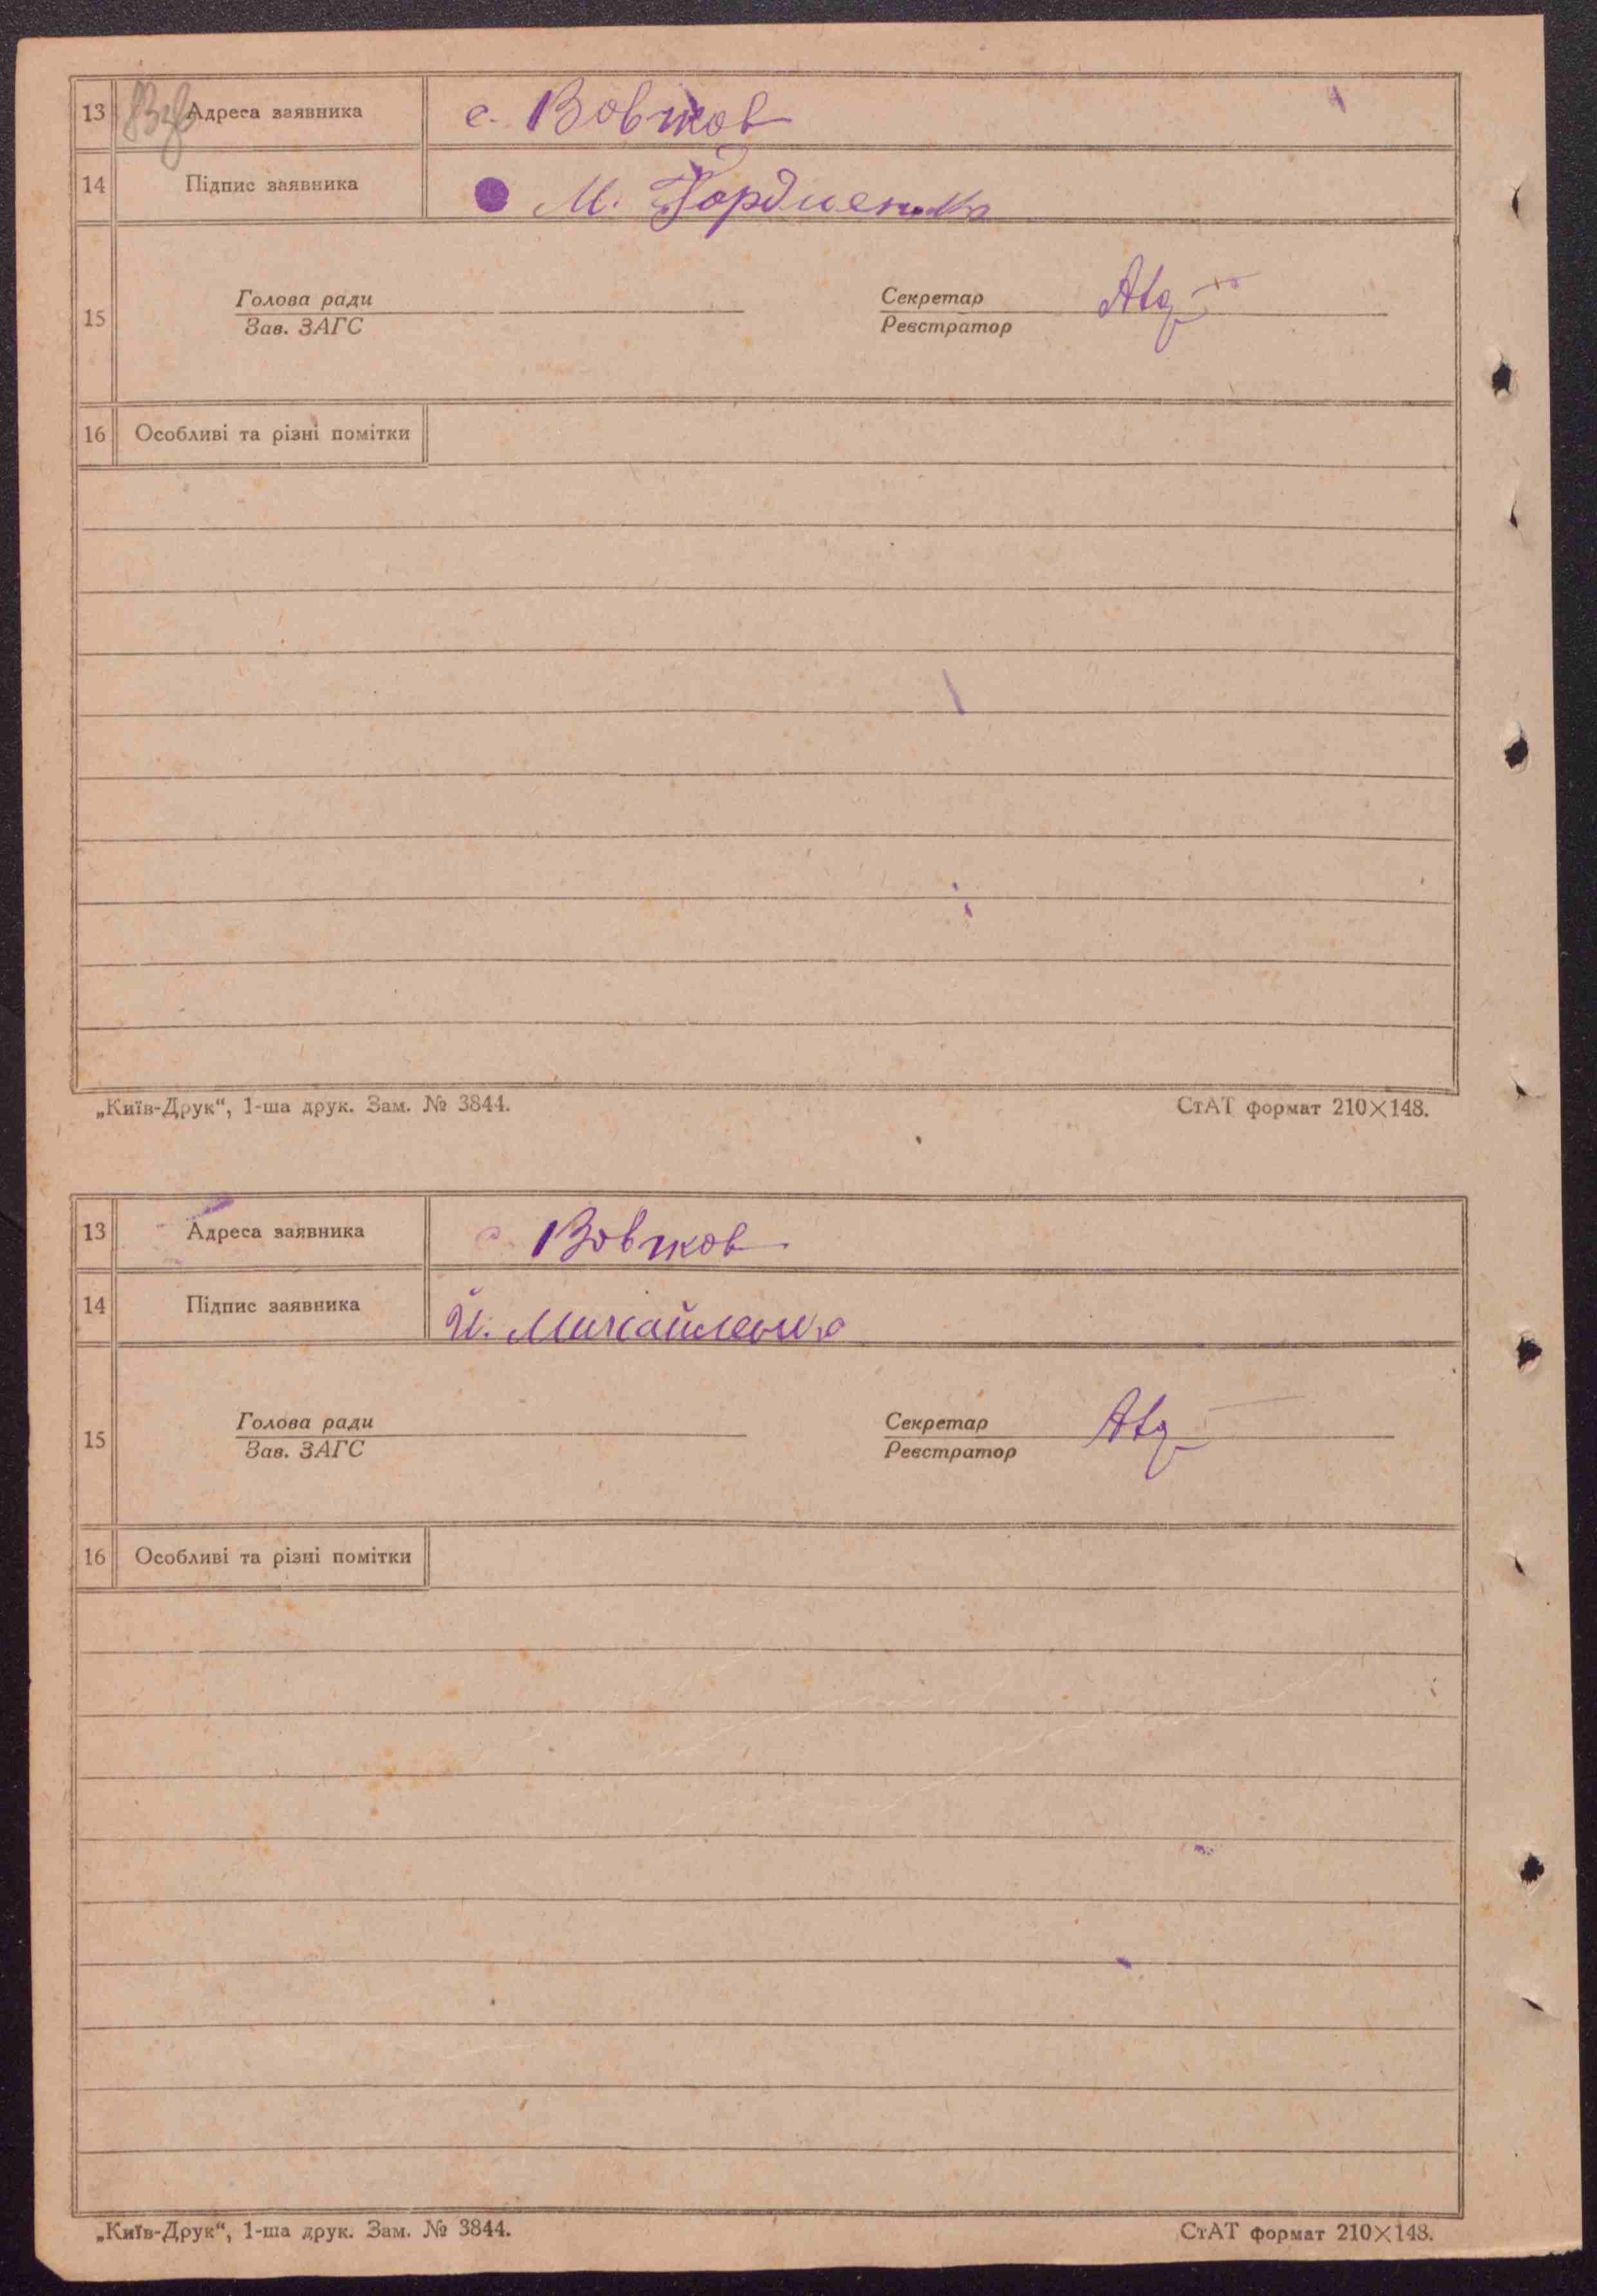 13 Адреса заявника с. Вовчков
14 Підпис заявника М. Гордиенко
15 Голова ради Секретар
Зав. ЗАГС Реєстратор
16 Особливі та різні помітки
„Київ-Друк“, 1-ша друк. Зам. № 3844. СтАТ формат 210×148.
13 Адреса заявника с. Вовчков
14 Підпис заявника Й. Михайленко
15 Голова ради Секретар
Зав. ЗАГС Реєстратор
16 Особливі та різні помітки
„Київ-Друк“, 1-ша друк. Зам. № 3844. СтАТ формат 210×148.